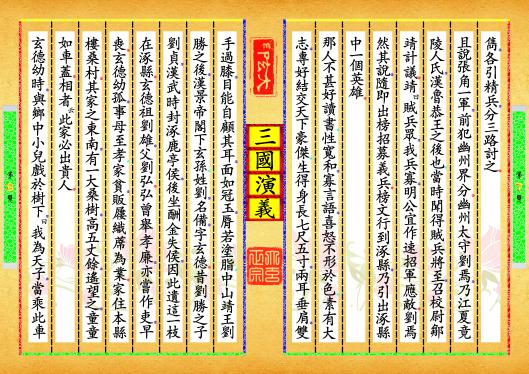 雋各引精兵分三路討之
且說張角一軍前犯幽州界分幽州太守劉焉乃江夏竟
陵人氏漢魯恭王之後也當時聞得賊兵將至召校尉鄒
靖計議靖曰賊兵眾我兵寡明公宜作速招軍應敵劉焉
然其說隨即出榜招募義兵榜文行到涿縣乃引出涿縣
中一個英雄
那人不甚好讀書性寬和寡言語喜怒不形於色素有大
志專好結交天下豪傑生得身長七尺五寸兩耳垂肩雙
三國演義
手過膝目能自顧其耳面如冠玉唇若塗脂中山靖王劉
勝之後漢景帝閣下玄孫姓劉名備字玄德昔劉勝之子
劉貞漢武時封涿鹿亭侯後坐酬金失侯因此遺這一枝
在涿縣玄德祖劉雄父劉弘弘曾舉孝廉亦嘗作吏早
喪玄德幼孤事母至孝家貧販屨織蓆為業家住本縣
樓桑村其家之東南有一大桑樹高五丈餘遙望之童童
如車蓋相者云此家必出貴人
玄德幼時與鄉中小兒戲於樹下曰我為天子當乘此車